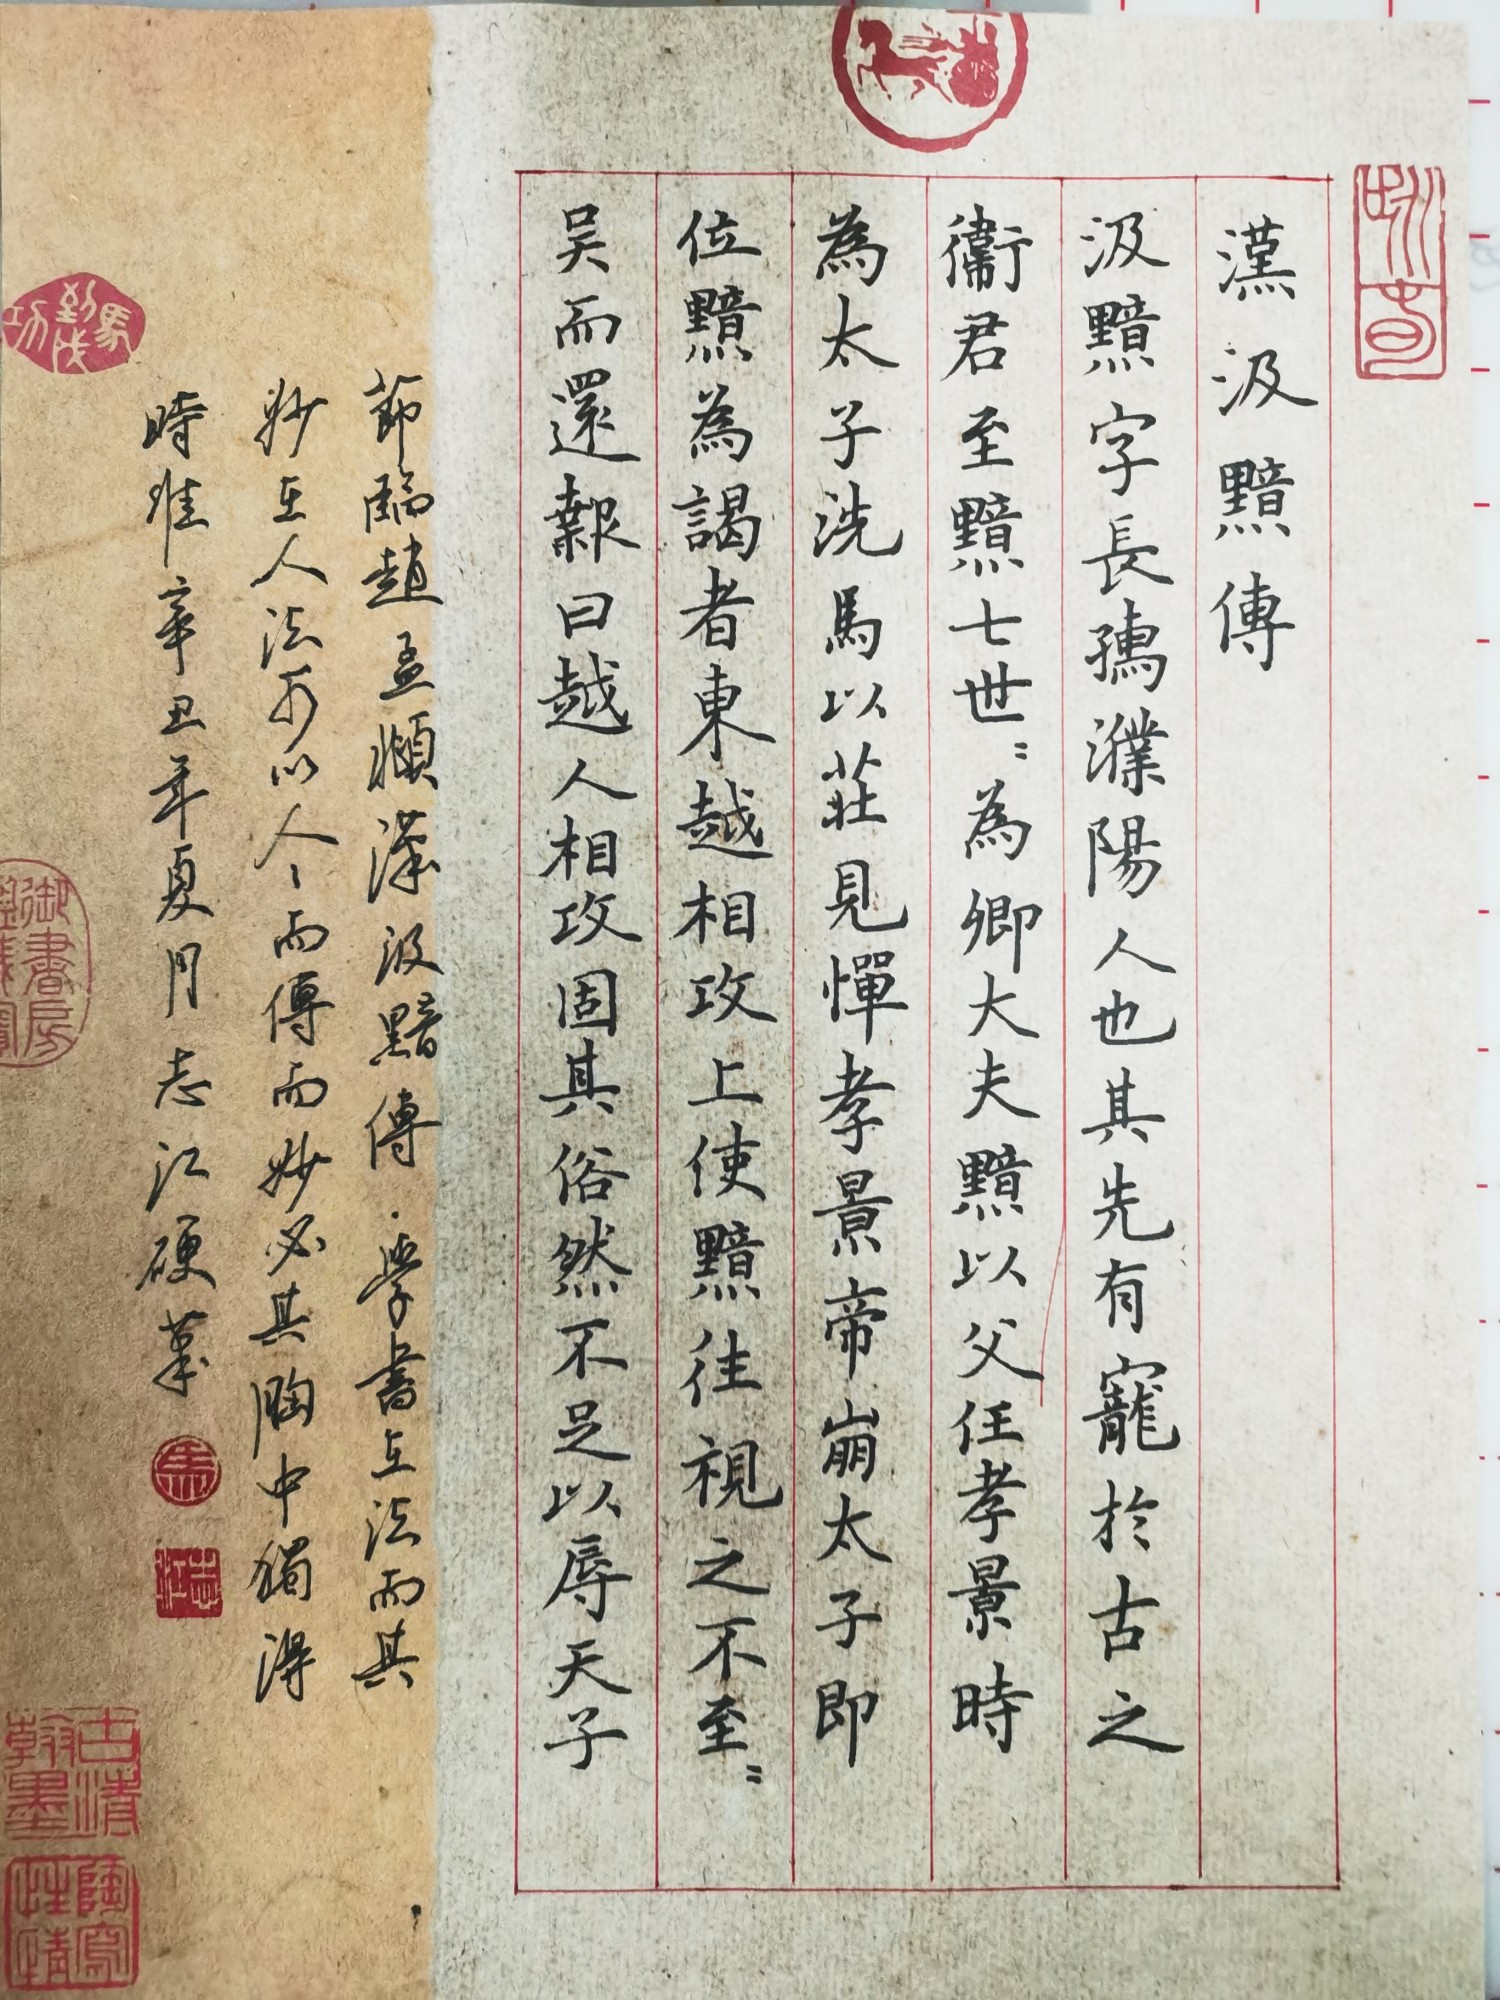 漢汲黯傳
汲黯字長孺濮陽人也其先有寵於古之
衞君至黯七世〻為卿大夫黯以父任孝景時
為太子洗馬以莊見憚孝景帝崩太子即
位黯為謁者東越相攻上使黯往視之不至〻
吴而還報曰越人相攻固其俗然不足以辱天子
節臨趙孟頫漢汲黯傳.學書在法而其
妙在人法可以人〻而傳而妙必其胸中獨得
時維辛丑年夏月志江硬筆
馬到成功
御書房
馬
志江
陶寫性情